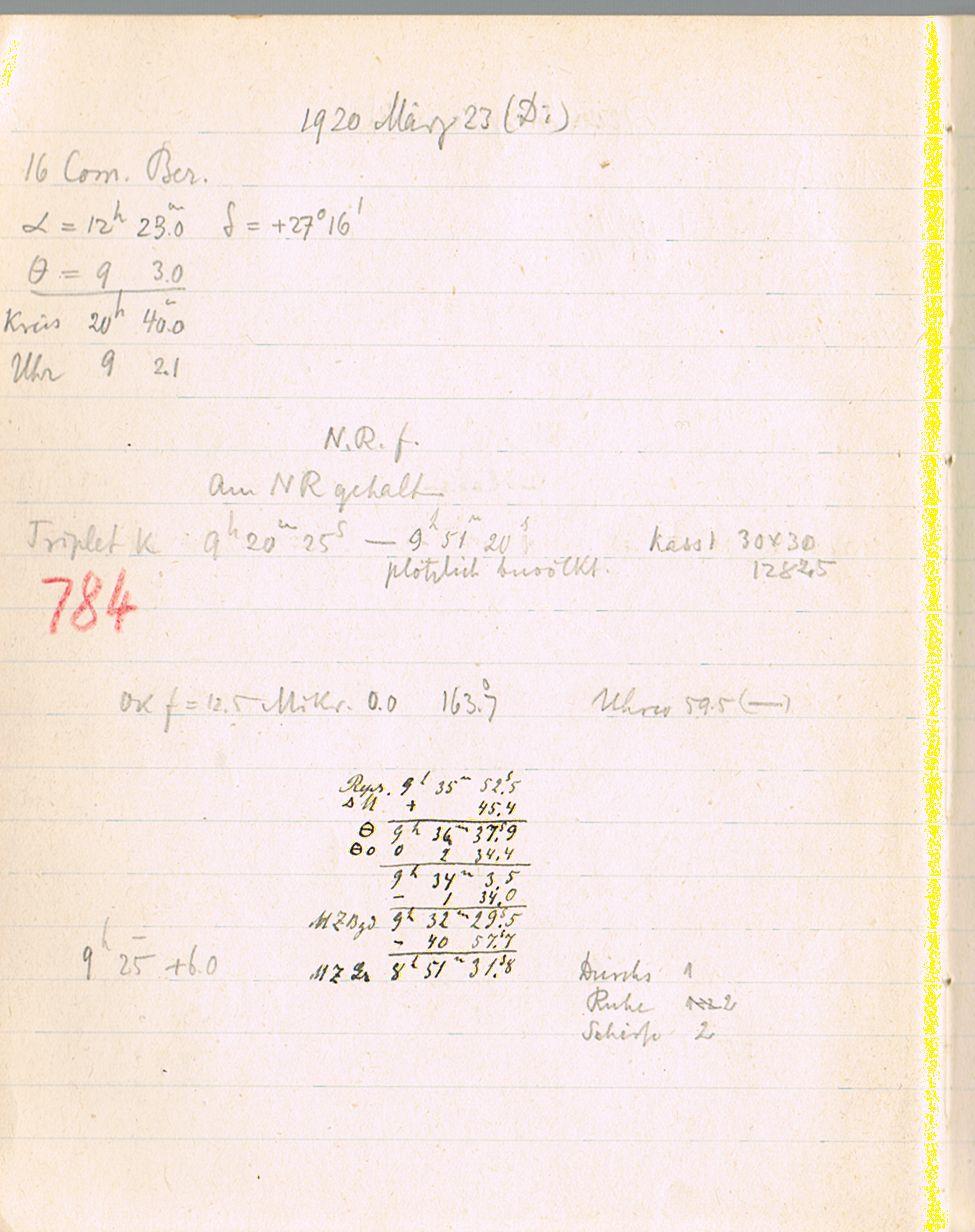 1920 März 23 (Di)
16 Com. Ber.
α = 12h 23.m0 δ = +27°16'
θ = 9 3.0
Kreis 20h 40.m0
Uhr 9 2.1
N.R. f.
am NR gehalt
Triplet K 9h 20m 25s — 9h 51m 20s Kass 1 30x30
plötzlich bewölkt. 12825
784
Ok f = 12.5 Mikr. 0.0 163.°7 Uhren 59.5 (—)
Regs. 9h 35m 52.s5
ΔU + 45.4
Θ 9h 36m 37.s9
Θo 0 2 34.4
9h 34m 3.5
- 1 34.0
MZBgd 9h 32m 29.s5
- 40 57.s7
9h 25 +6.0 MZGr 8h 51m 31.s8
Durchs 1
Ruhe 2
Schärfe 2